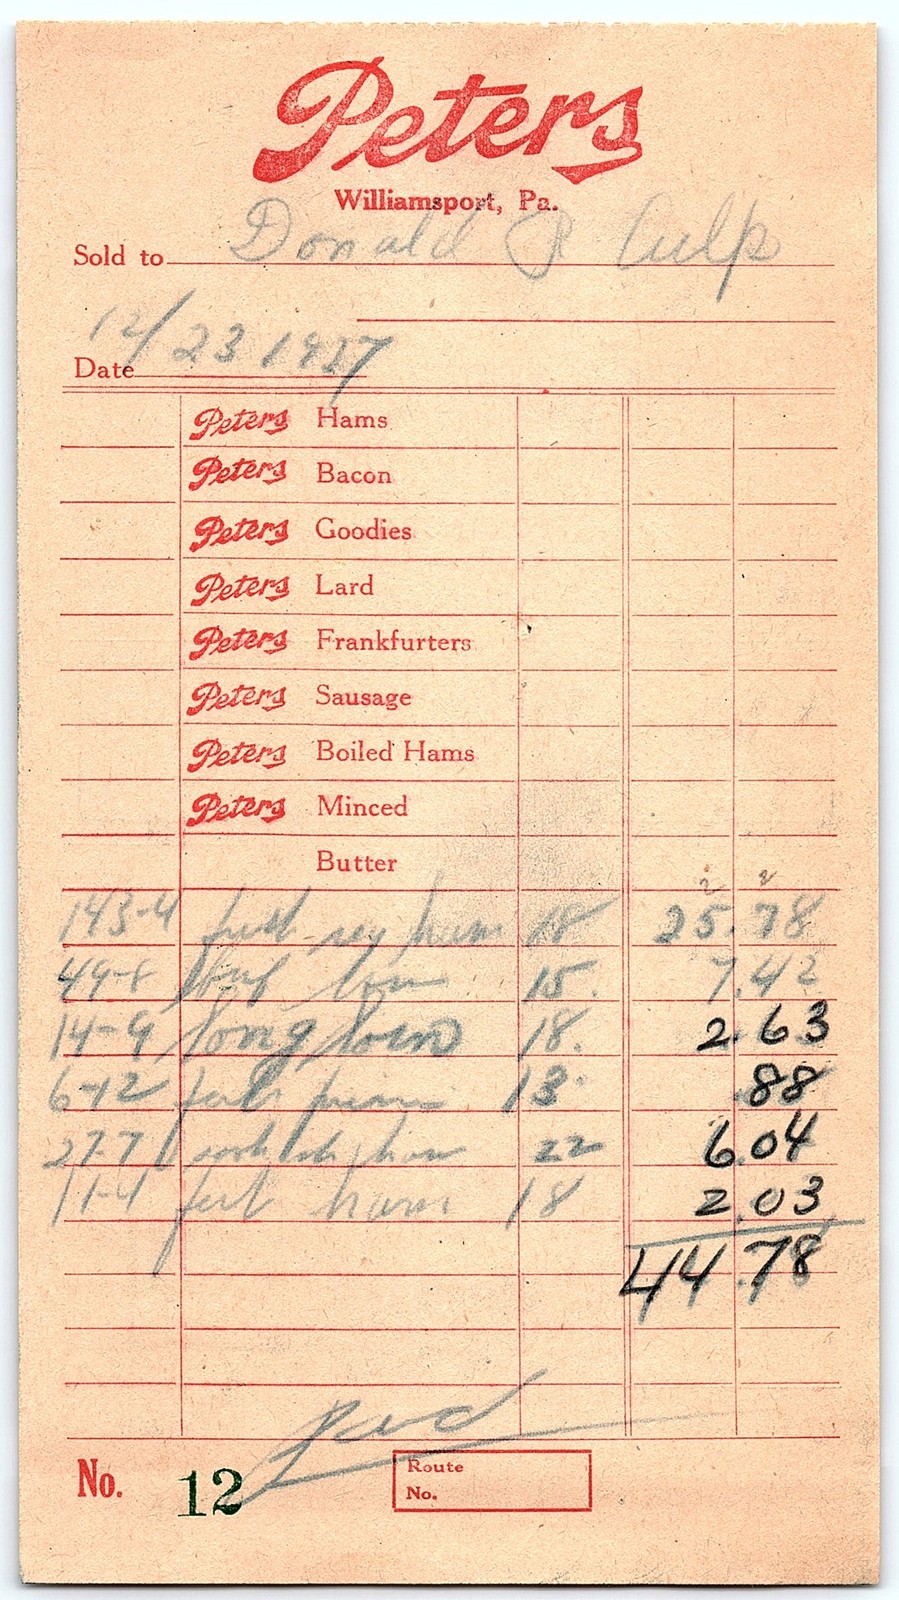 Peters
Williamsport, Pa.
Sold to Donald R Culp
Date 12/23 1937
Peters Hams
Peters Bacon
Peters Goodies
Peters Lard
Peters Frankfurters
Peters Sausage
Peters Boiled Hams
Peters Minced
Butter
143-4 ham 18 25.78
49-8 15. 7.42
14-9 long loin 18. 2.63
6-12 13 .88
27-7 ham 22 6.04
11-4 ham 18 2.03
44.78
Paid
No. 12
Route
No.